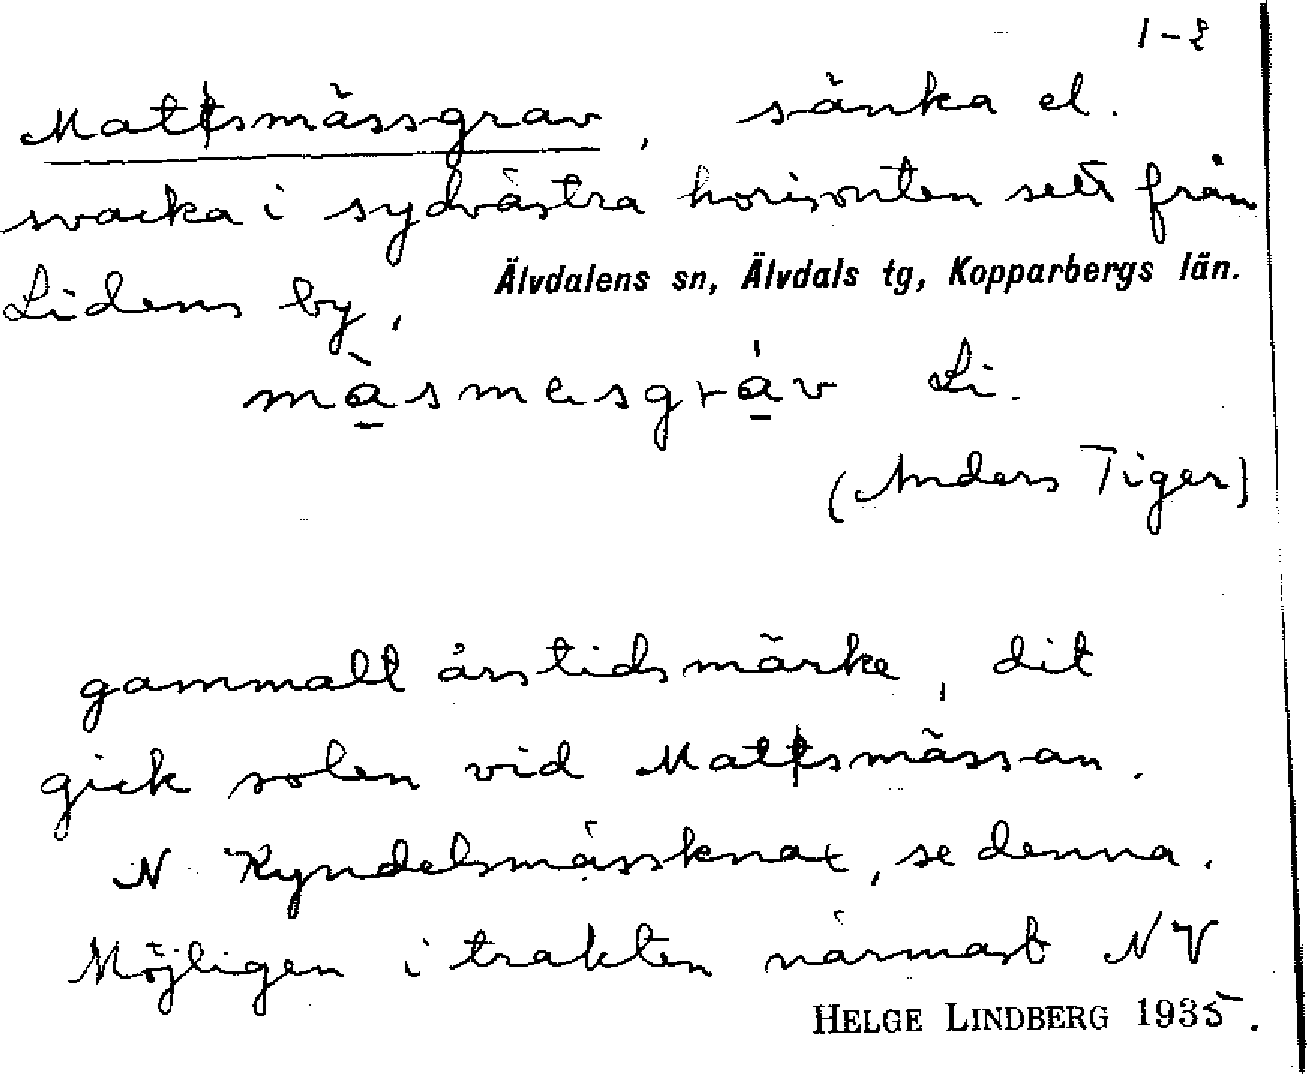 1-2
Mattsmässgrav, sänka el.
svacka i sydvästra horisonten sett från
Lidens by,
Älvdalens sn, Älvdals tg, Kopparbergs län.
màsmesgráv Li.
(Anders Tiger)
gammalt årstidsmärke, dit
gick solen vid Mattsmässan.
N Kyndelsmässknat, se denna.
Möjligen i trakten närmast NV
HELGE LINDBERG 1935.